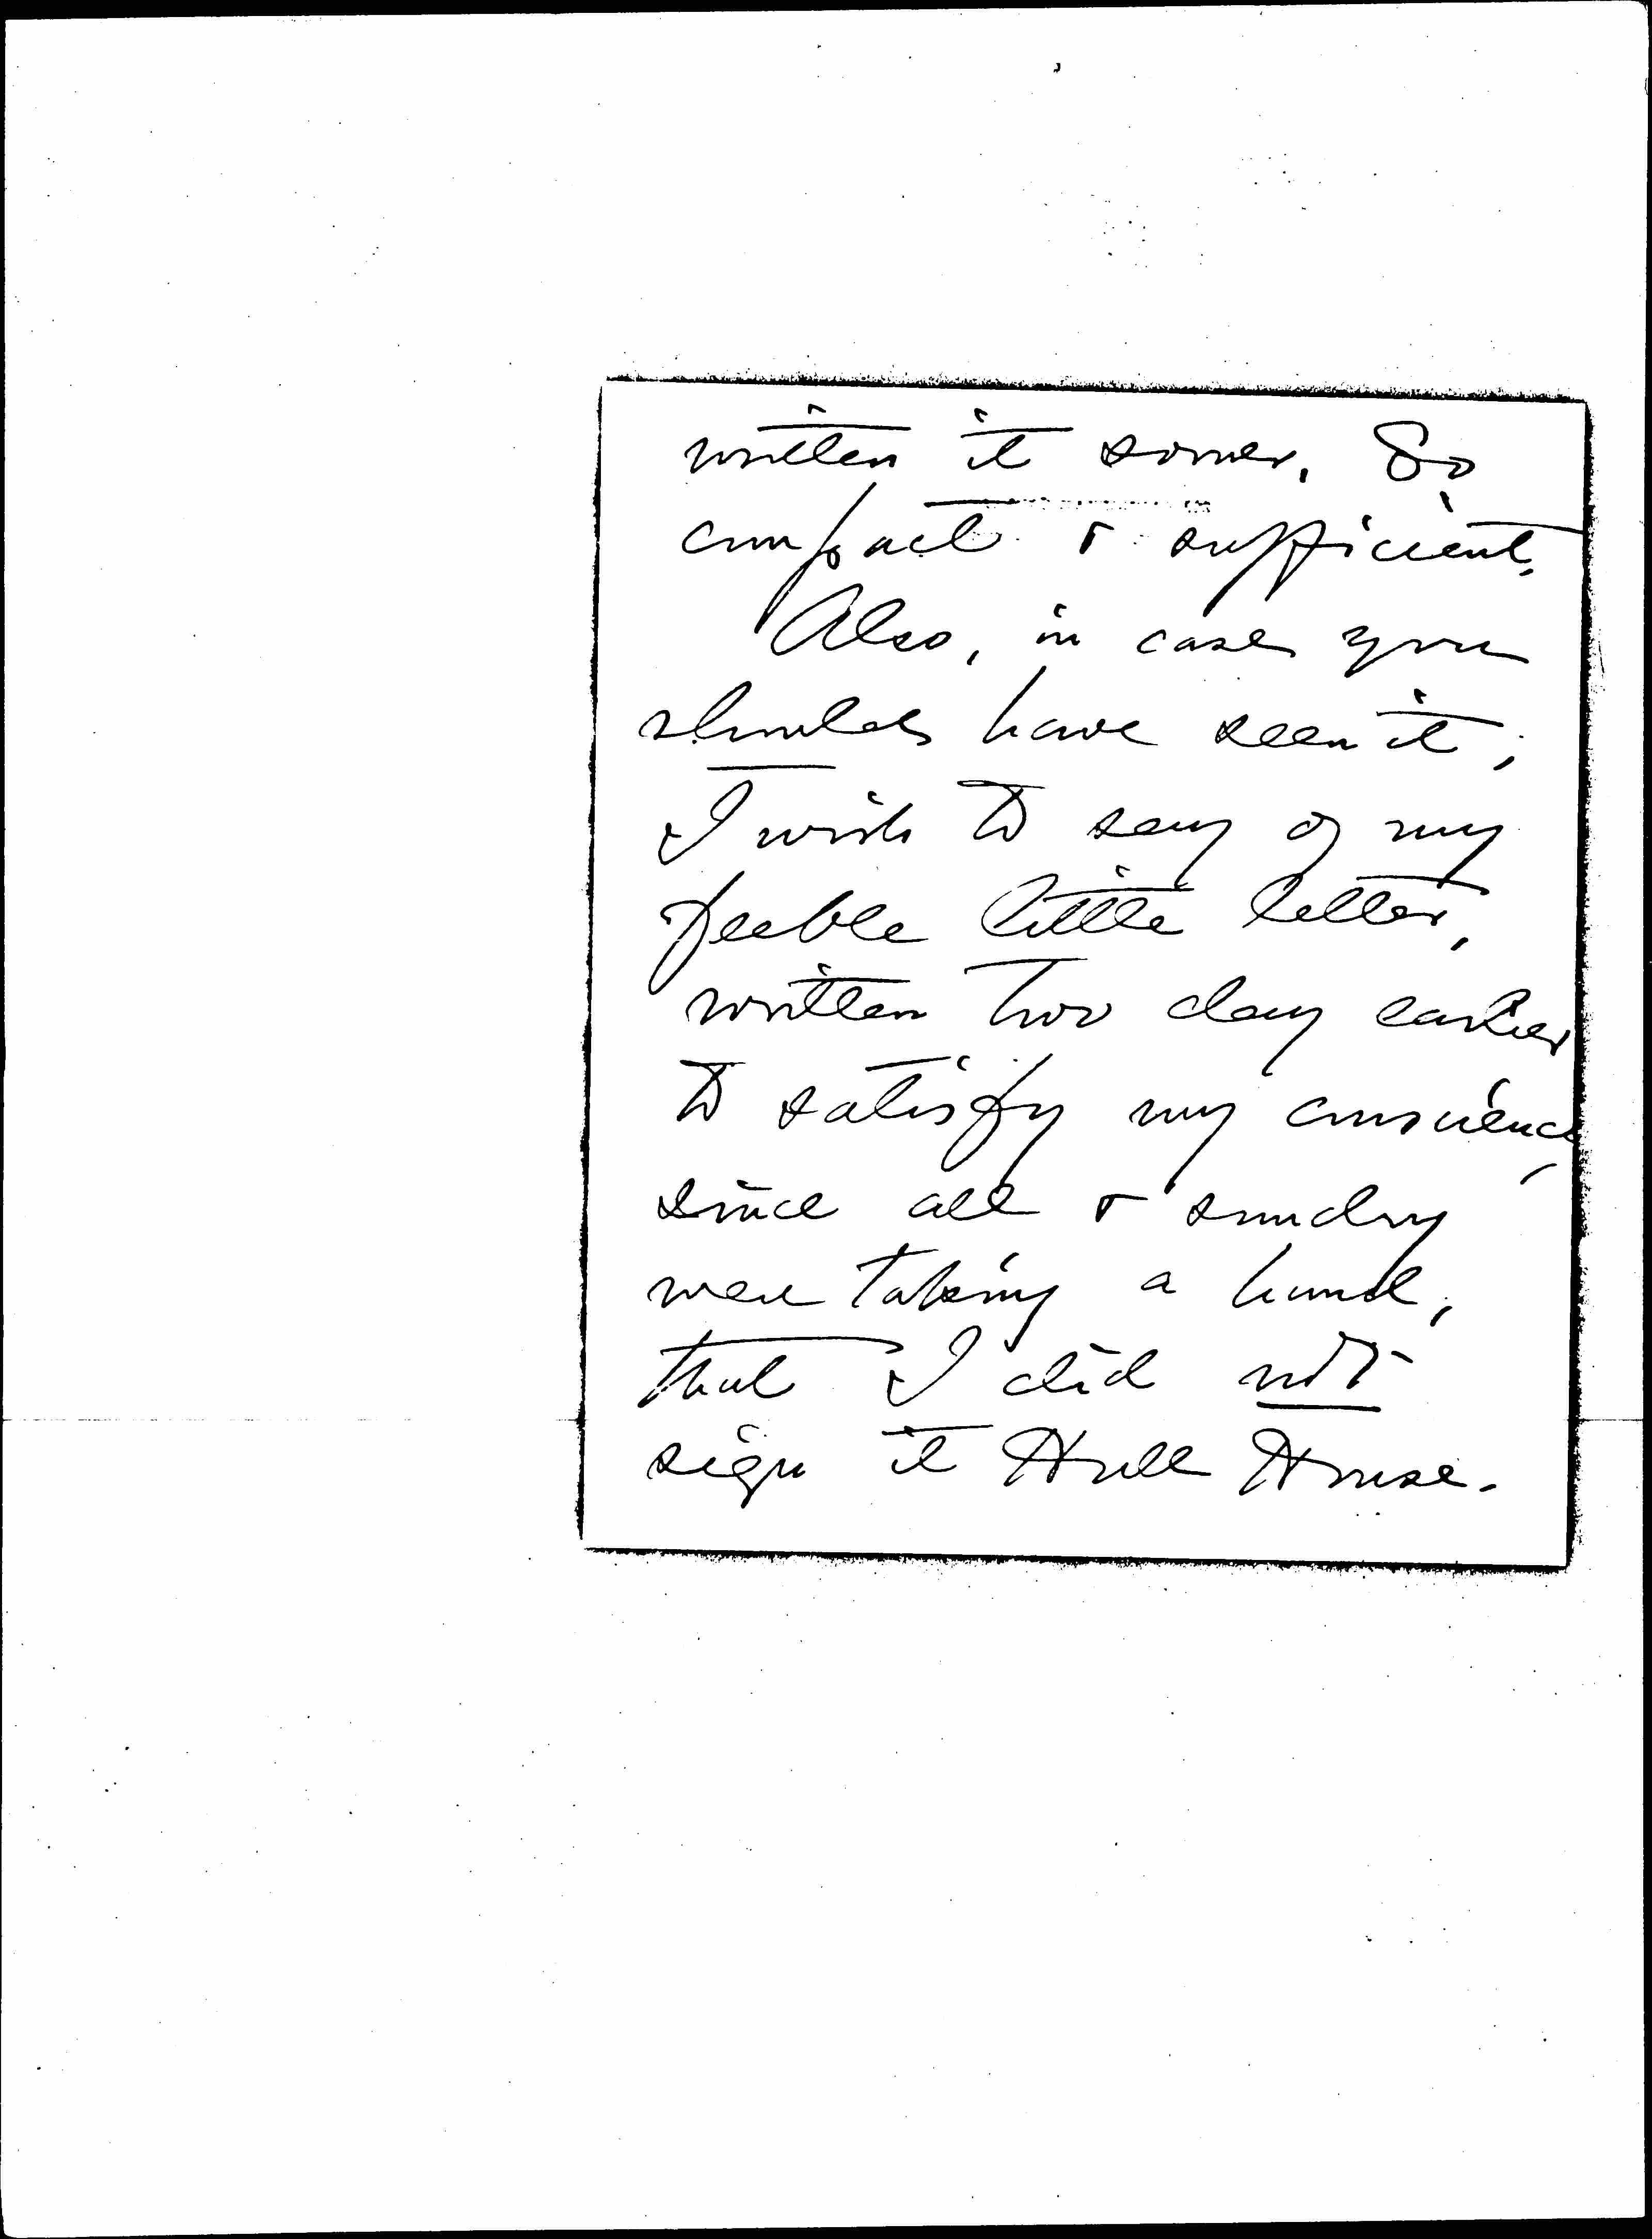 written it sooner. So
compact & sufficient.
Also, in case you
should have seen it,
I wish to say of my
feeble little letter,
written two day earlier
to satisfy my conscience,
since all & sundry
were taking a hand,
that I did not
sign it Hull House.